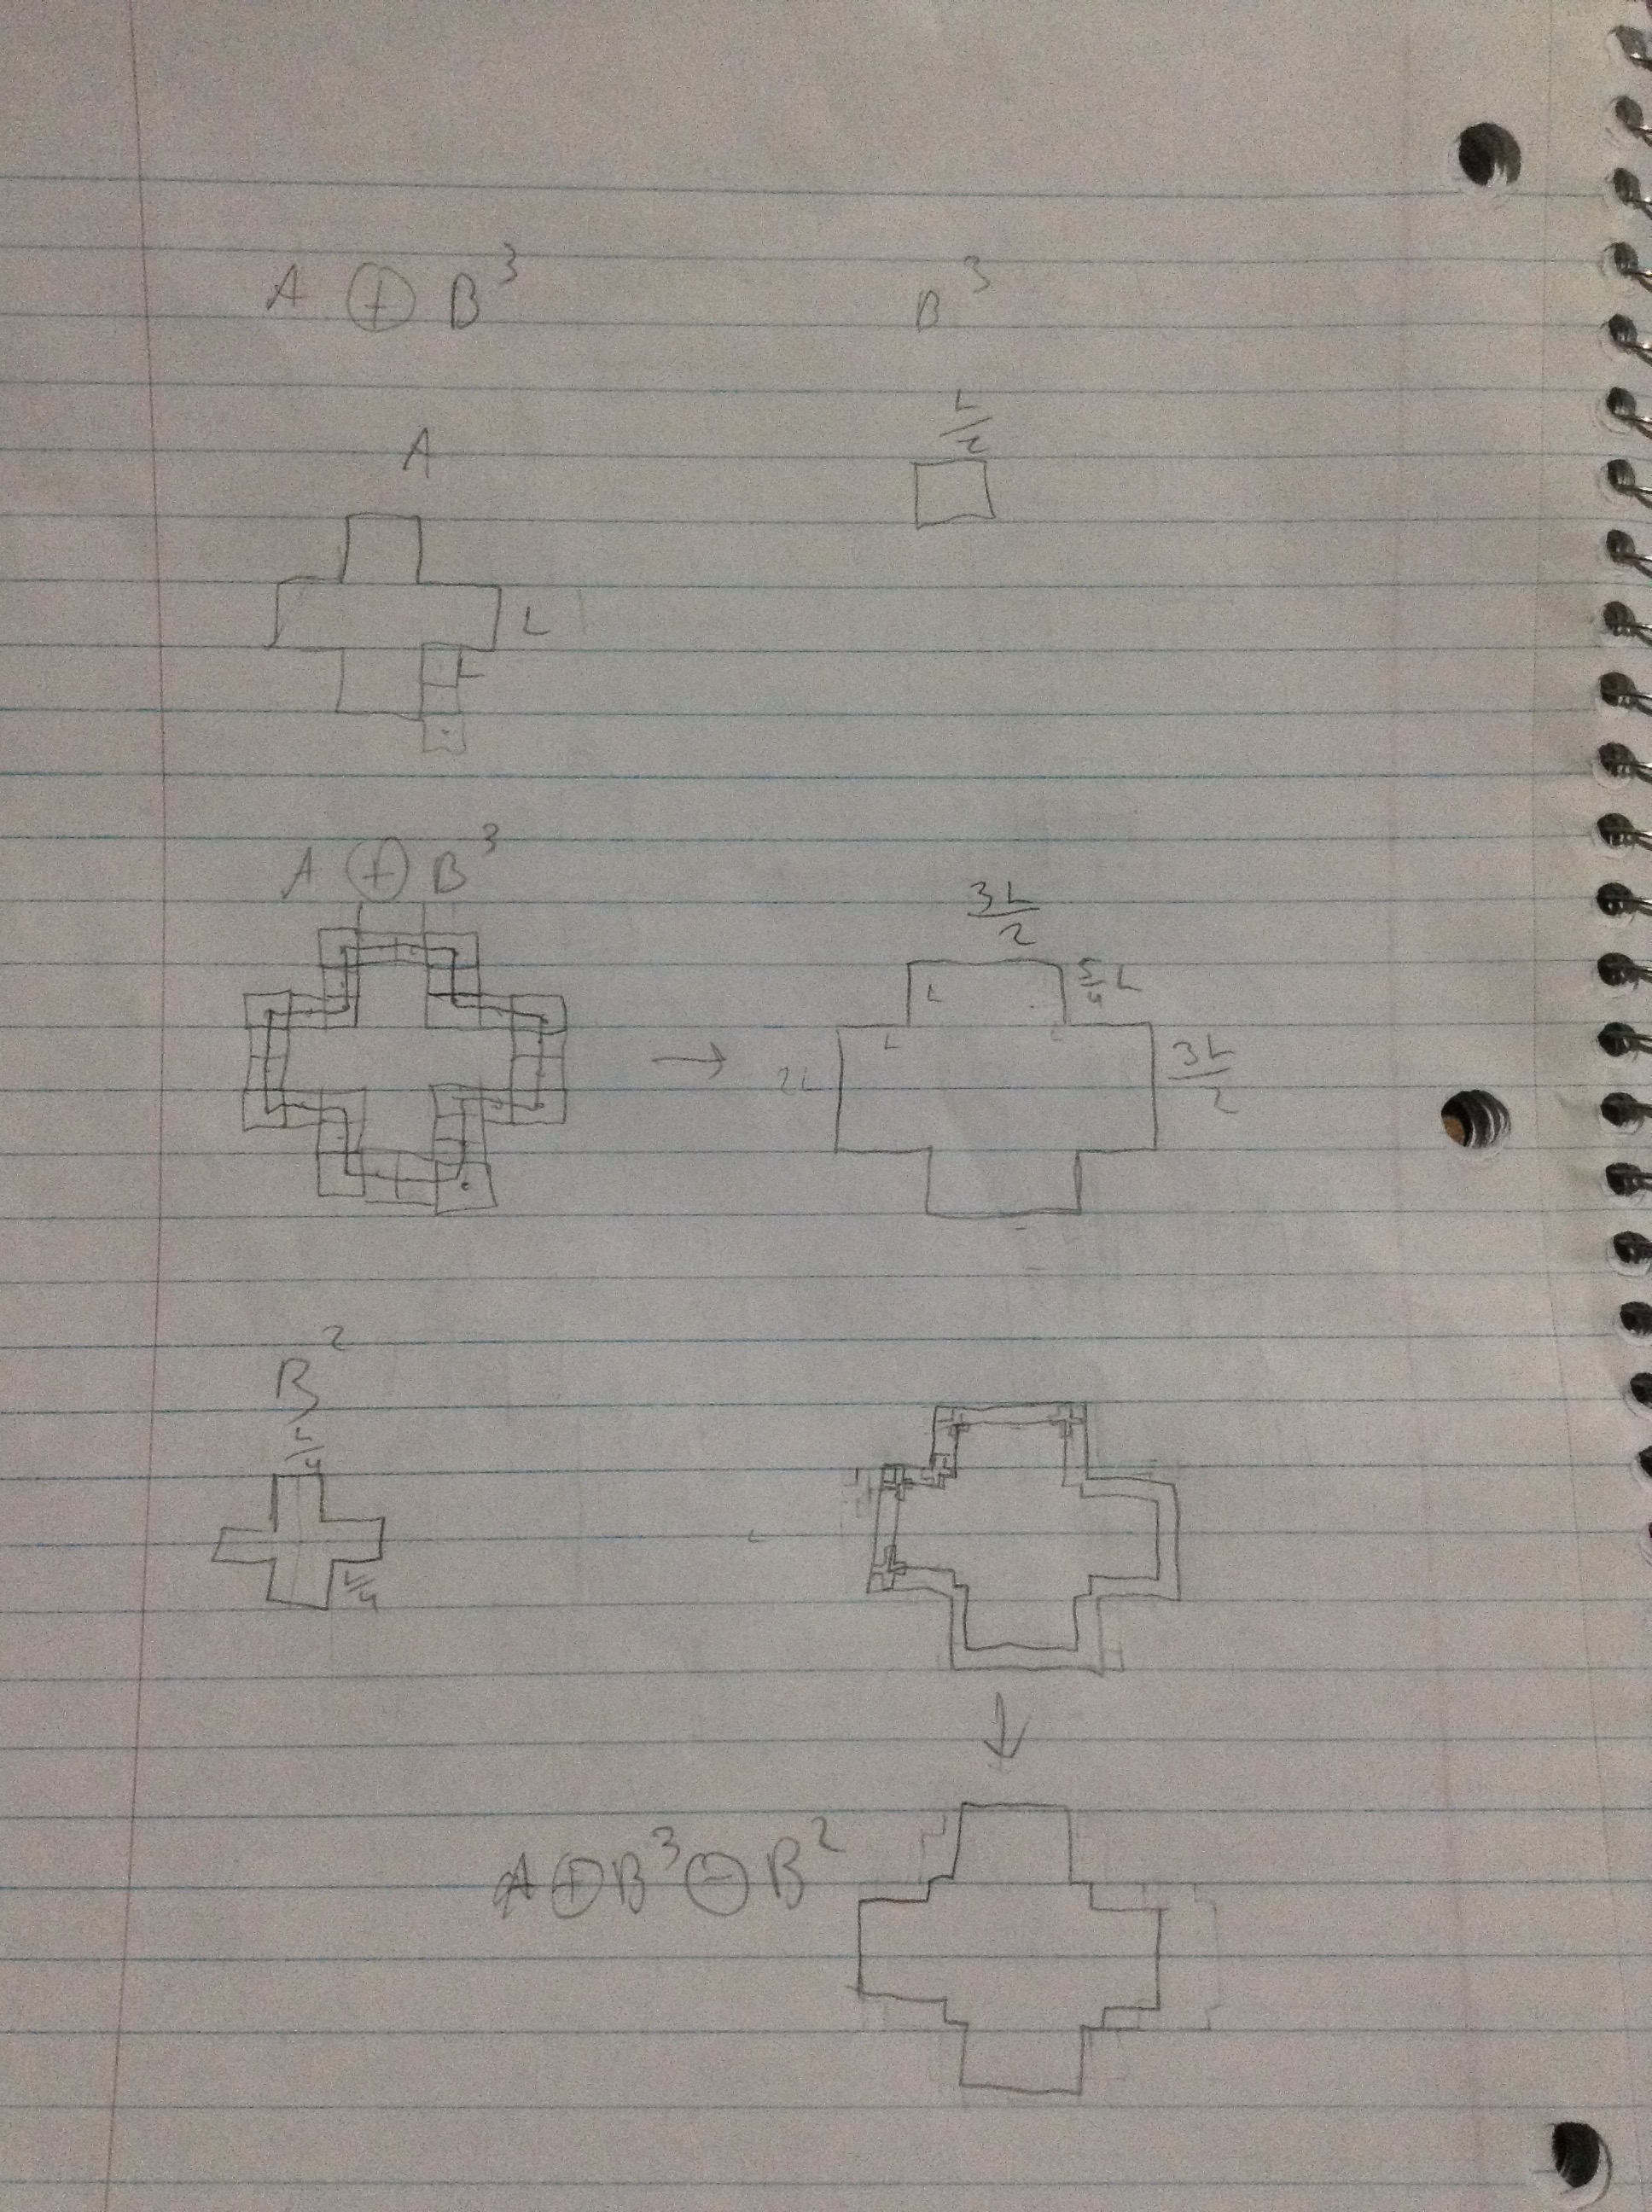 A ⊕ B³
B³
L/2
A
L
L
A ⊕ B³
3L/2
5/4 L
L
L
L
2L
3L/2
B²
L/4
L/4
A ⊕ B³ ⊖ B²